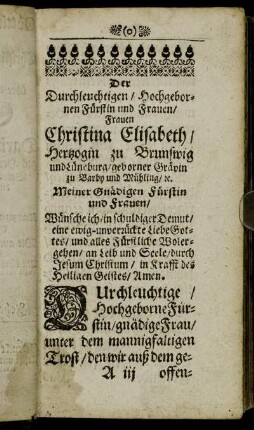 (o)
Der
Durchleuchtigen / Hochgebor-
nen Fürstin und Frauen /
Frauen
Christina Elisabeth /
Hertzogin zu Brunswig
und Lüneburg / geborner Grävin
zu Barby und Mühling / ꝛc.
Meiner Gnädigen Fürstin
und Frauen /
Wünsche ich / in schuldiger Demut /
eine ewig-unverrückte Liebe Got-
tes / und alles Fürstliche Woler-
gehen / an Leib und Seele / durch
Jesum Christum / in Krafft des
Heiligen Geistes / Amen.
DUrchleuchtige /
Hochgeborne Für-
stin / gnädige Frau /
unter dem mannigfaltigen
Trost / den wir auß dem ge-
A iij offen-